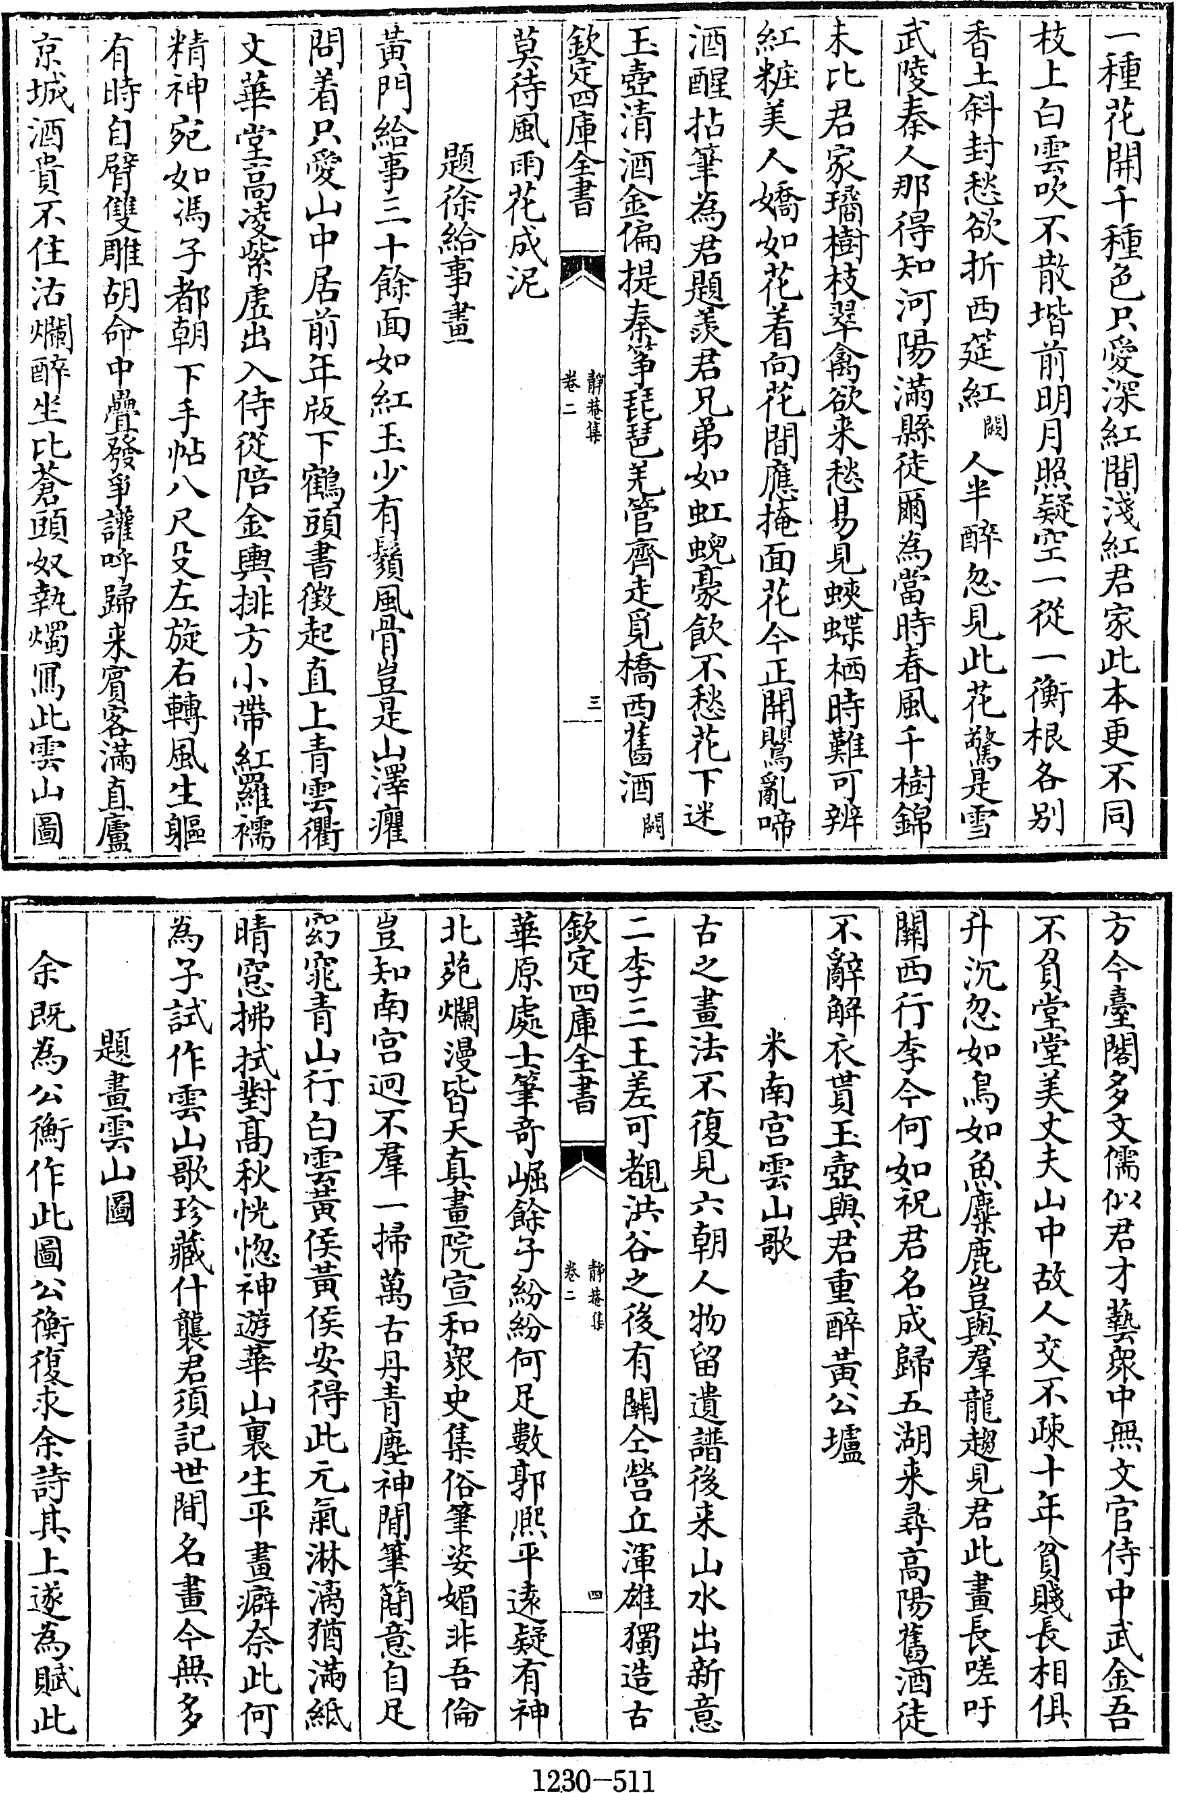 一種花開千種色只愛深紅間淺紅君家此本更不同
枝上白雲吹不散堦前明月照疑空一從一衡根各别
香土斜封愁欲折西筵紅闕人半醉忽見此花驚是雪
武陵秦人那得知河陽滿縣徒爾為當時春風千樹錦
未比君家璚樹枝翠禽欲来愁易見蛺蝶栖時難可辨
紅粧美人嬌如花着向花間應掩面花今正開鸎亂啼
酒醒拈筆為君題羨君兄弟如虹蜺豪飲不愁花下迷
玉壺清酒金偏提秦箏琵琶羌管齊走覓橋西舊酒闕
欽定四庫全書
静菴集
卷二
三
莫待風雨花成泥
題徐給事畫
黄門給事三十餘面如紅玉少有鬚風骨豈是山澤癯
問着只愛山中居前年版下鶴頭書徴起直上青雲衢
文華堂高凌紫虚出入侍從陪金輿排方小帶紅羅襦
精神宛如馮子都朝下手帖八尺殳左旋右轉風生軀
有時自臂雙雕胡命中疊發爭讙呼歸来賓客滿直廬
京城酒貴不住沽爛醉坐比蒼頭奴執燭寫此雲山圖
方今臺閣多文儒似君才藝衆中無文官侍中武金吾
不負堂堂美丈夫山中故人交不疎十年貧賤長相俱
升沉忽如鳥如魚麋鹿豈與羣龍趨見君此畫長嗟吁
關西行李今何如祝君名成歸五湖来尋高陽舊酒徒
不辭解衣貰玉壺與君重醉黄公壚
米南宫雲山歌
古之畫法不復見六朝人物留遺譜後来山水出新意
二李三王差可覩洪谷之後有關仝營丘渾雄獨造古
欽定四庫全書
静菴集
卷二
四
華原處士筆竒崛餘子紛紛何足數郭熈平逺疑有神
北苑爛漫皆天真畫院宣和衆史集俗筆姿媚非吾倫
豈知南宫迥不羣一掃萬古丹青塵神閒筆簡意自足
窈窕青山行白雲黄侯黄侯安得此元氣淋漓猶滿紙
晴窓拂拭對髙秋恍惚神遊華山裏生平畫癖奈此何
為子試作雲山歌珍藏什襲君須記世間名畫今無多
題畫雲山圖
余既為公衡作此圖公衡復求余詩其上遂為賦此
1230-511